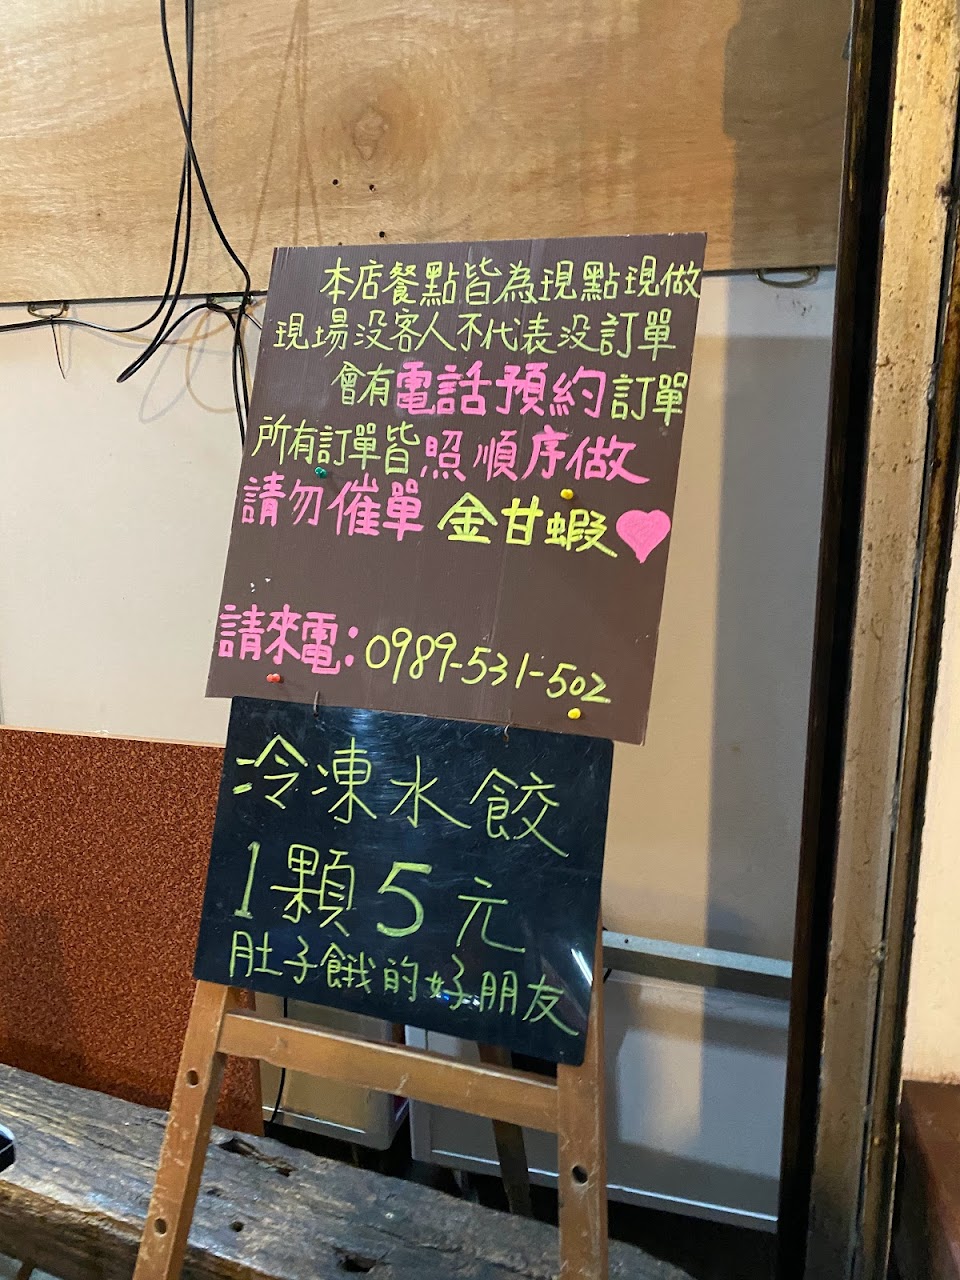 本店餐點皆為現點現做
現場沒客人不代表沒訂單
會有電話預約訂單
所有訂單皆照順序做
請勿催單 金甘蝦
請來電:0989-531-502
冷凍水餃
1顆5元
肚子餓的好朋友